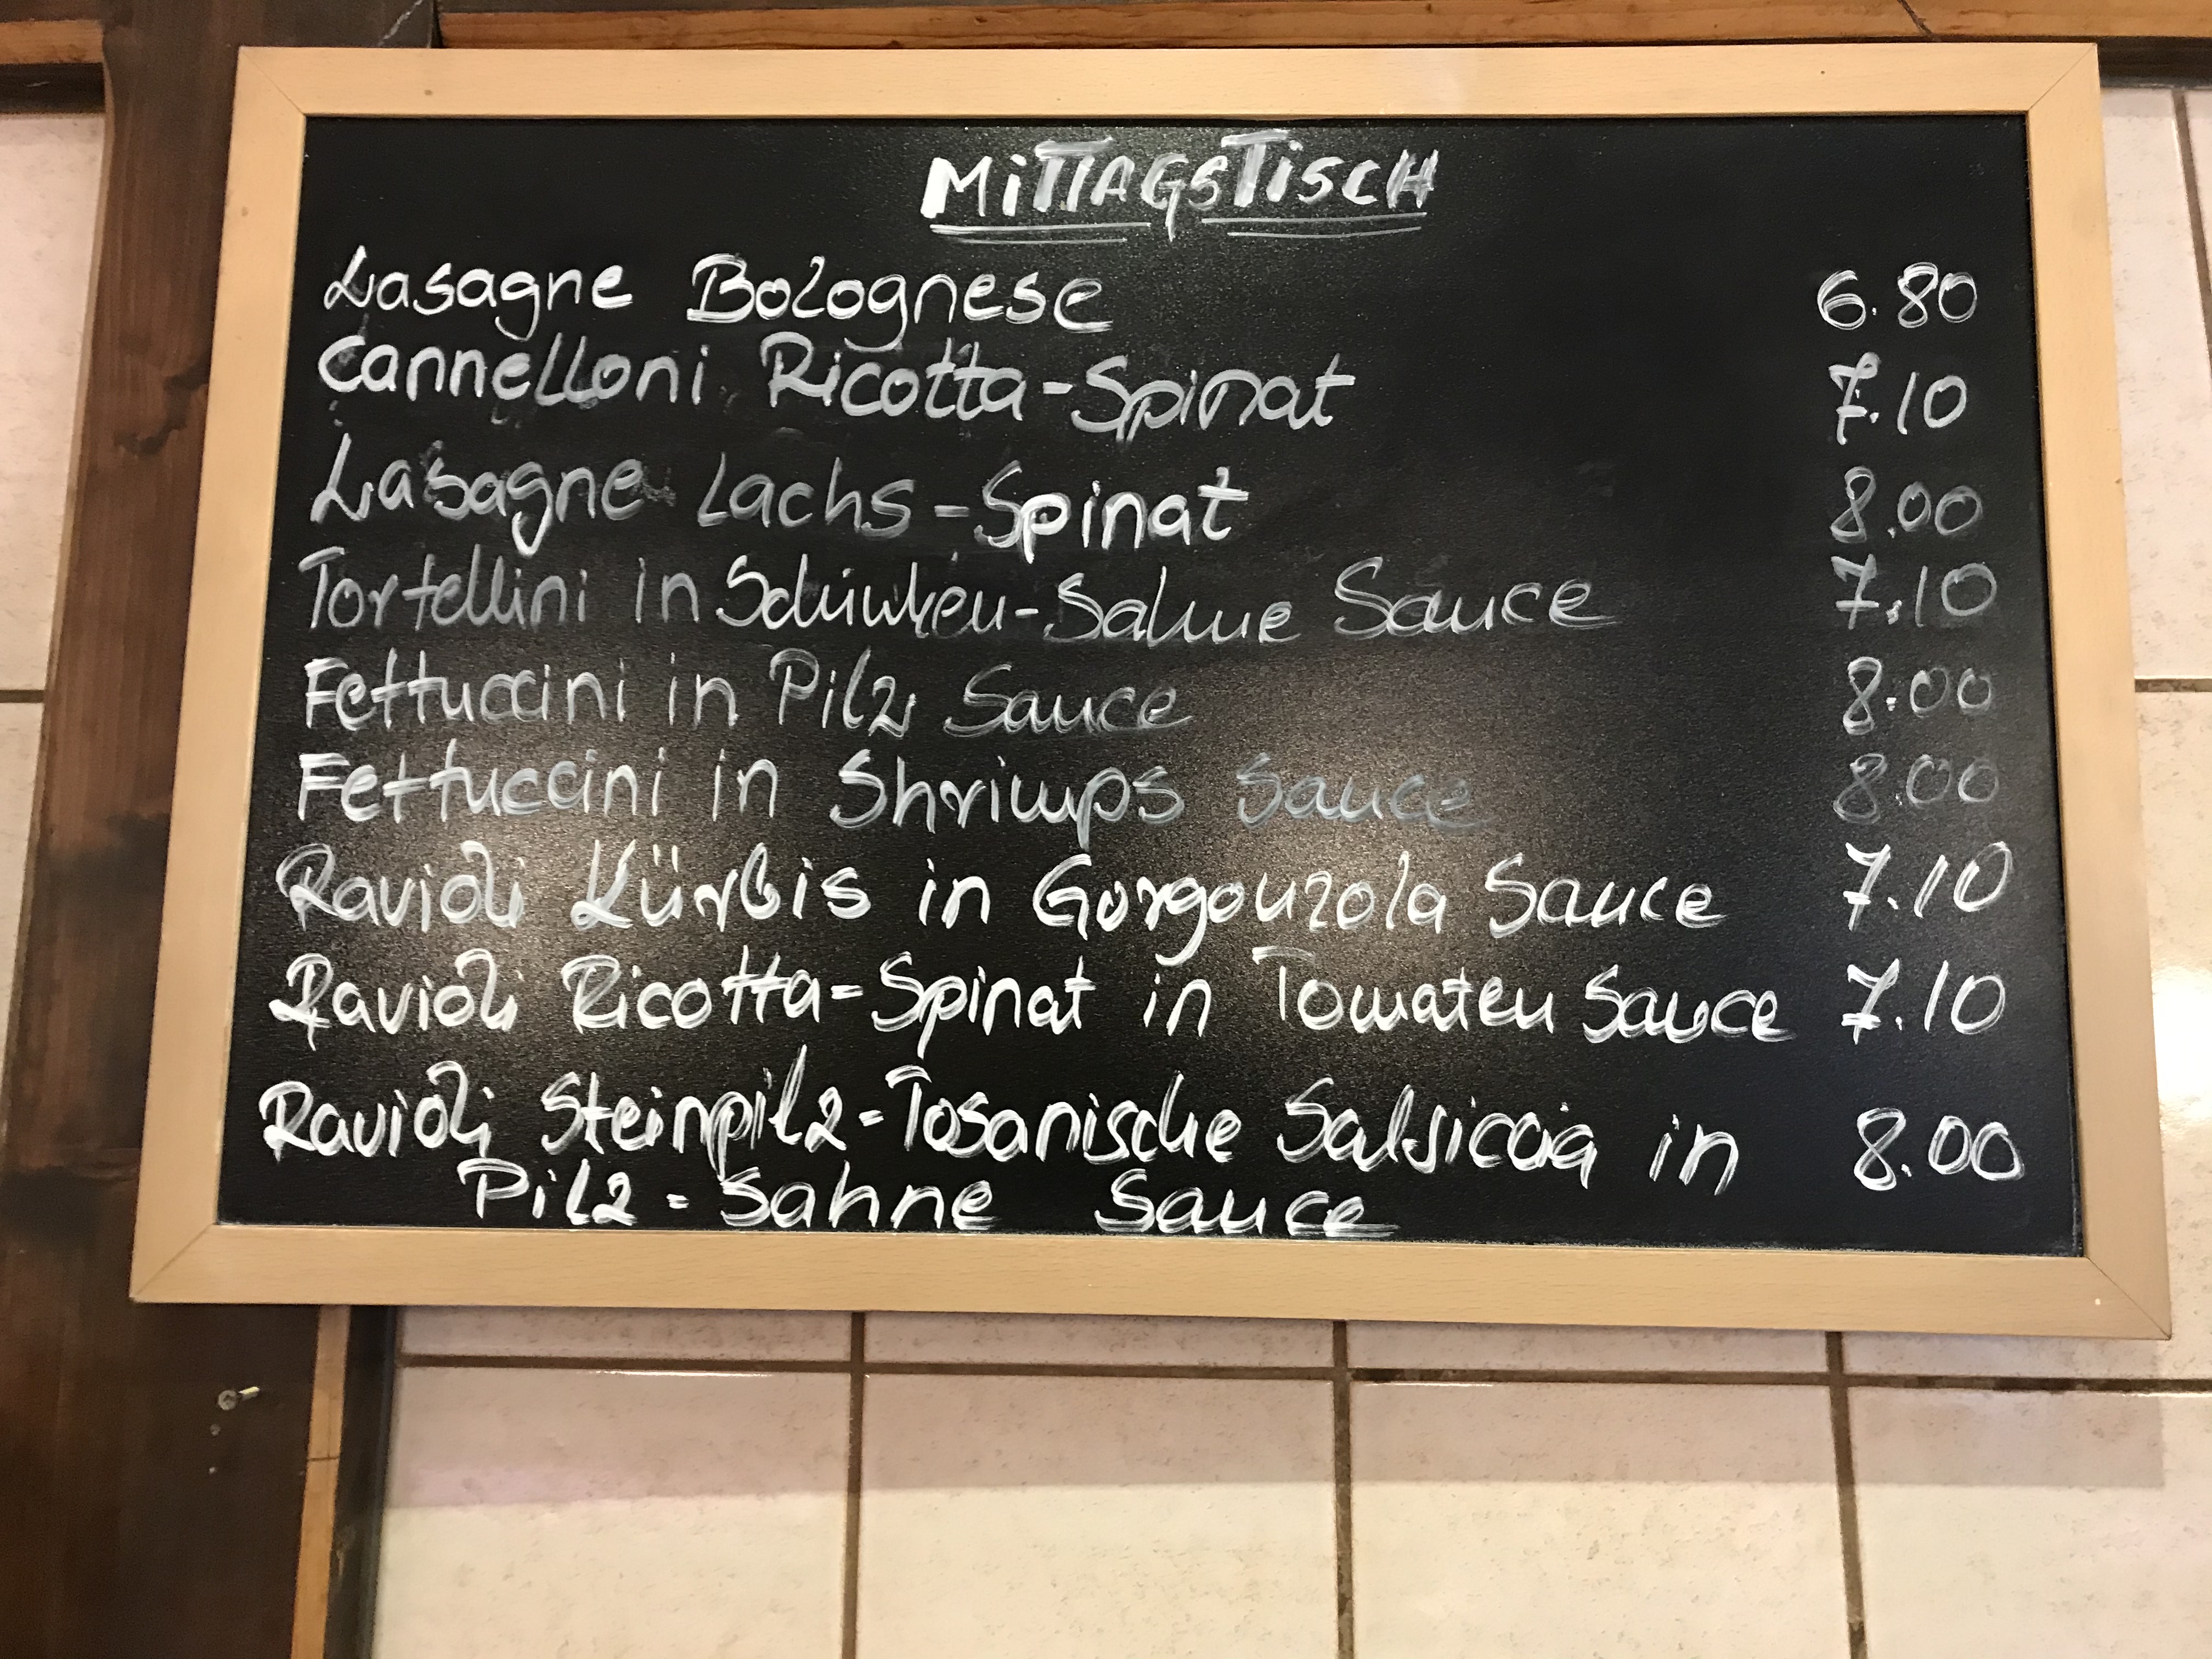 MiTTAGSTiSCH
Lasagne Bolognese 6.80
Cannelloni Ricotta-Spinat 7.10
Lasagne Lachs-Spinat 8.00
Tortellini in Schinken-Sahne Sauce 7.10
Fettuccini in Pilz Sauce 8.00
Fettuccini in Shrimps Sauce 8.00
Ravioli Kürbis in Gorgonzola Sauce 7.10
Ravioli Ricotta-Spinat in Tomaten Sauce 7.10
Ravioli Steinpilz-Tosanische Salsiccia in 8.00
Pilz-Sahne Sauce